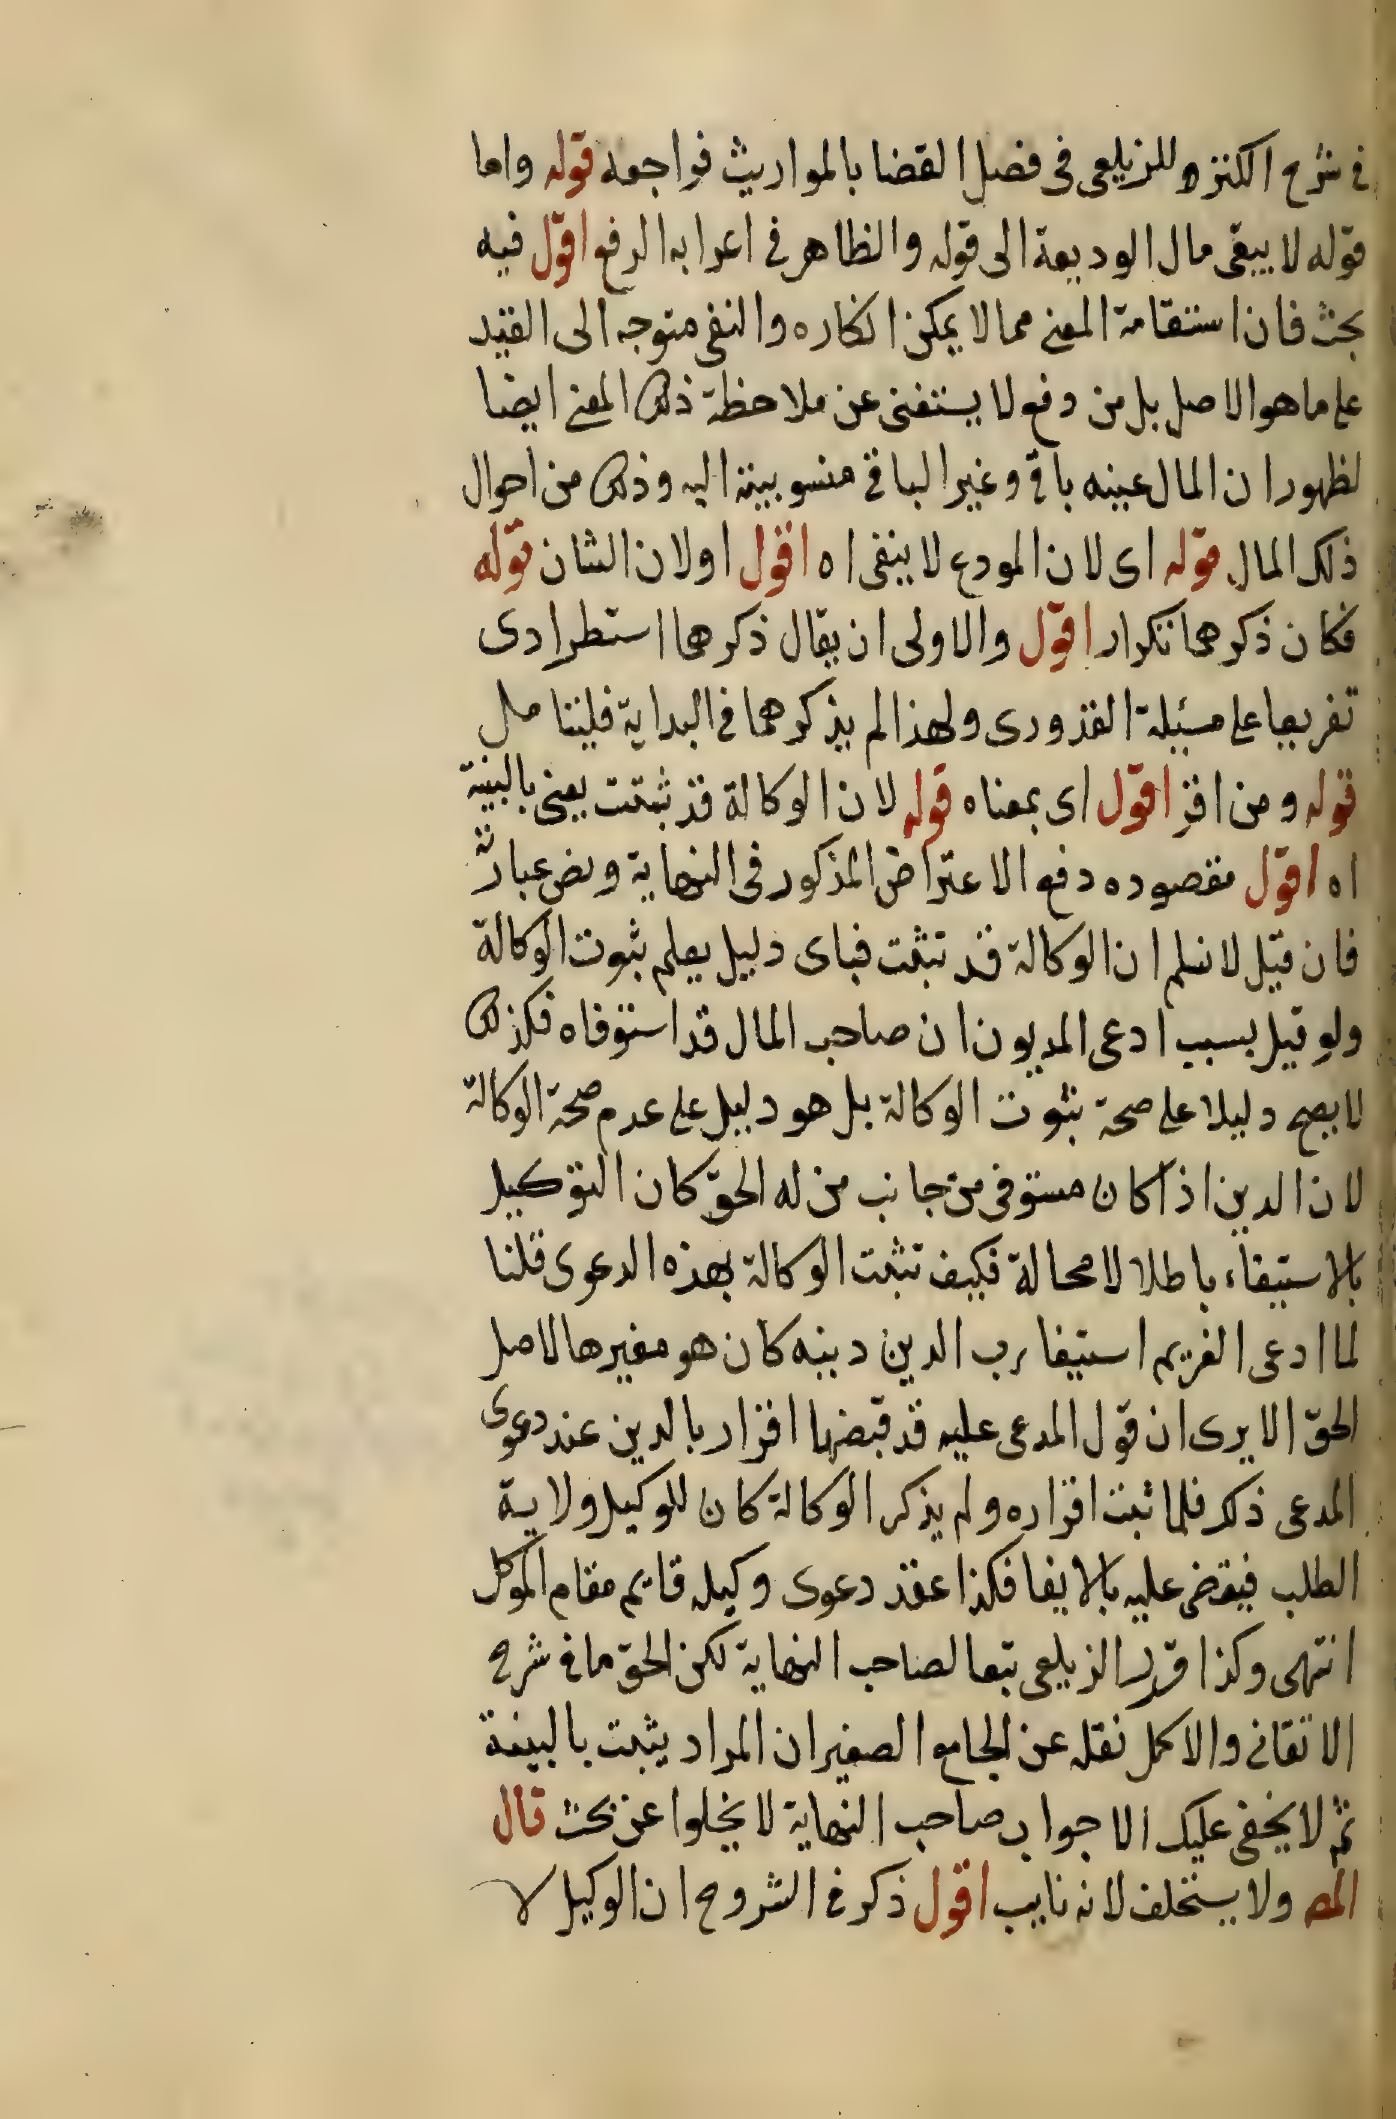 في شرح الكنز للزيلعي في فصل القضا بالمواريث فراجعه قوله واما
قوله لا يبقى مال الوديعة الى قوله والظاهر في اعرابه الرفع اقول فيه
بحث فان استقامة المعنى مما لا يمكن انكاره والنفي متوجه الى القيد
على ما هو الاصل بل من دفع لا يستغنى عن ملاحظة ذلك المعنى ايضا
لظهور ان المال عينه باق وغير الباقي منسوبيته اليه وذلك من احوال
ذلك المال قوله اى لان المودع لا ينفى اه اقول اولان الشان قوله
فكان ذكرهما تكرار اقول والاولى ان يقال ذكرهما استطرادى
تفريعا على مسئلة القدورى ولهذا لم يذكرهما في البداية فليتامل
قوله ومن اقر اقول اى بمعناه قوله لان الوكالة قد ثبتت يعنى بالبينة
اه اقول مقصوده دفع الاعتراض المذكور في النهاية ونص عبارته
فان قيل لا نسلم ان الوكالة قد تثبت فباى دليل يعلم بثوت الوكالة
ولو قيل بسبب ادعى المديون ان صاحب المال قد استوفاه فكذلك
لا يصح دليلا على صحة بثوت الوكالة بل هو دليل على عدم صحة الوكالة
لان الدين اذا كان مستوفى من جانب من له الحق كان التوكيل
بالاستيفاء باطلا لا محالة فكيف تثبت الوكالة بهذه الدعوى قلنا
لما ادعى الغريم استيفا رب الدين دينه كان هو مغيرها لاصل
الحق الا يرى ان قول المدعى عليه قد قبضها اقرار بالدين عند دعوى
المدعى ذلك فلما ثبت اقراره ولم يذكر الوكالة كان للوكيل ولاية
الطلب فيقضى عليه بالايفا فكذا عند دعوى وكيله قايم مقام الموكل
انتهى وكذا قرر الزيلعى تبعا لصاحب النهاية لكن الحق ما في شرح
الاتقانى والاكمل نقله عن الجامع الصغير ان المراد يثبت بالبينة
ثم لا يخفى عليك الا جواب صاحب النهاية لا يخلوا عن بحث قال
المص ولا يستحلف لانه نايب اقول ذكر في الشروح ان الوكيل لا